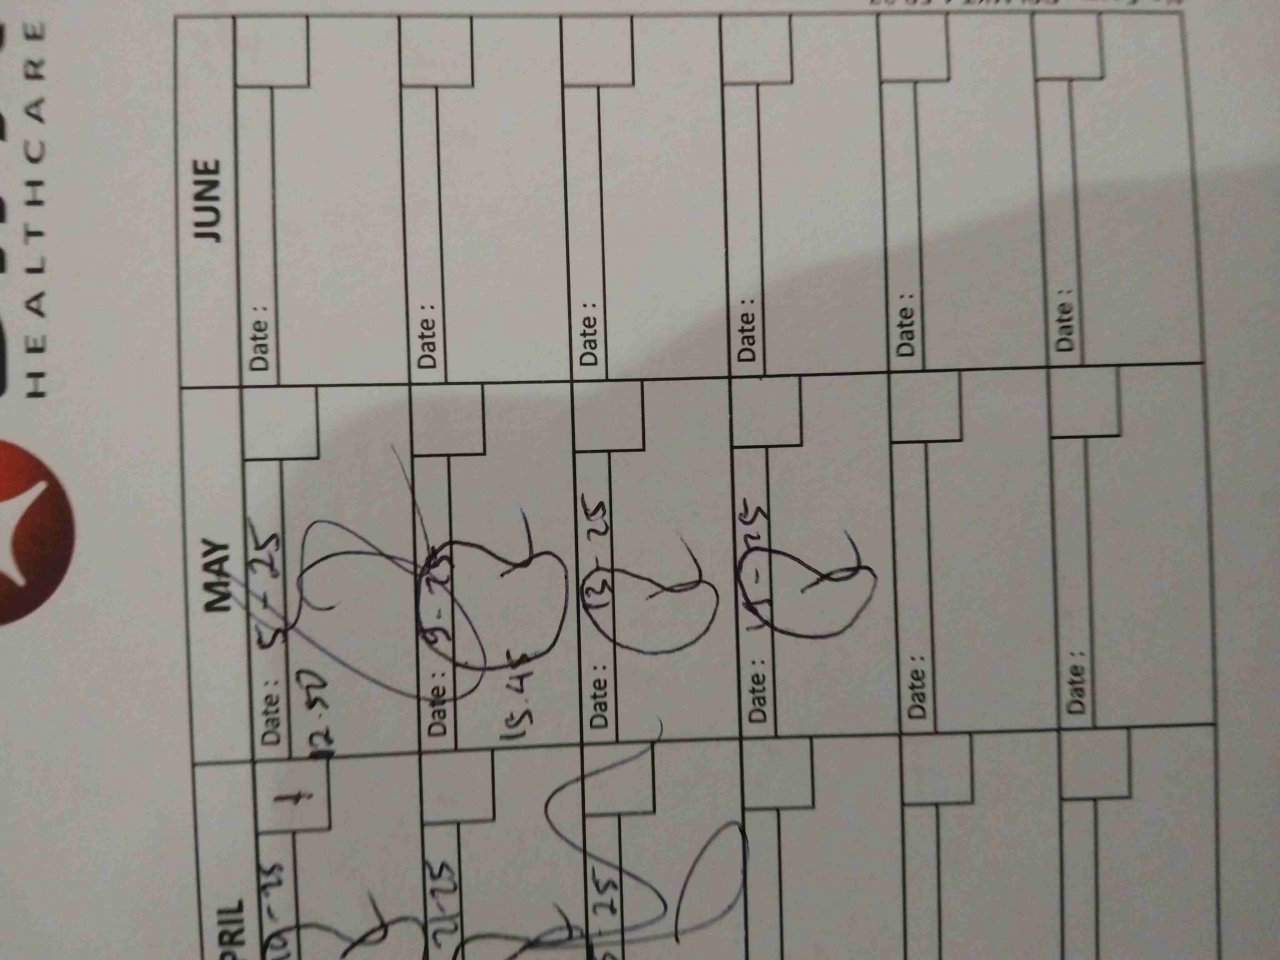 HEALTHCARE
PRIL
MAY
JUNE
19-25
1
Date: 5-25
12.50
Date:
21-25
Date: 9-25
15.45
Date:
25
Date: 13-25
Date:
Date: 15-25
Date:
Date:
Date:
Date:
Date: